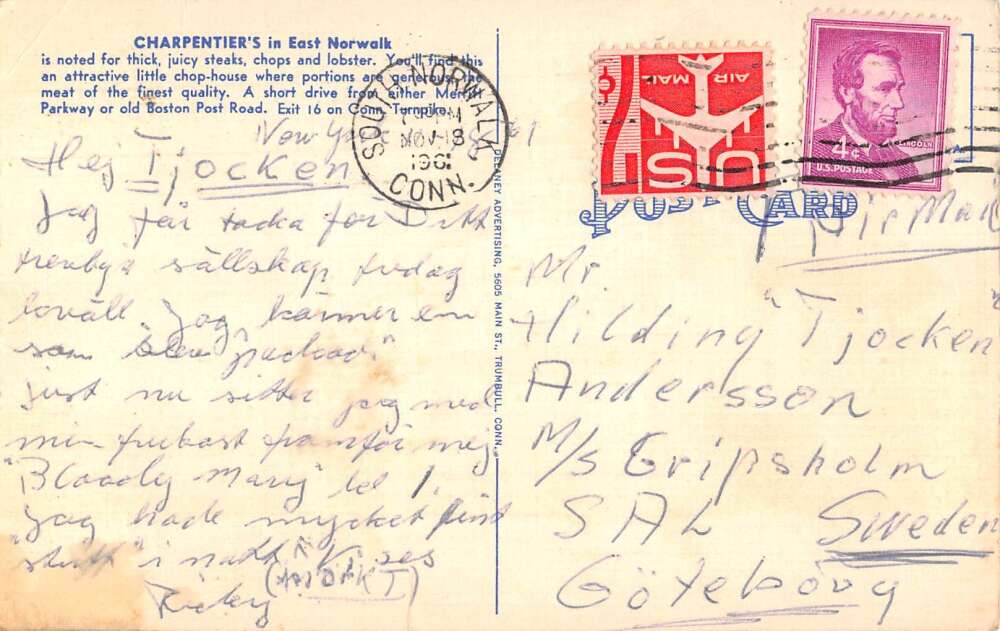 CHARPENTIER'S in East Norwalk
is noted for thick, juicy steaks, chops and lobster. You'll find this
an attractive little chop-house where portions are generous, the
meat of the finest quality. A short drive from either Merritt
Parkway or old Boston Post Road. Exit 16 on Conn. Turnpike.
SOUTH NORWALK,
NOV 18
1961
CONN.
New York
Hej Tjocken
Jag får tacka för Ditt
trevliga sällskap fredag
kväll. Jag känner
som
just nu sitter jag med
min frukost framför mej
"Bloody Mary" 1.
Jag hade mycket fint
i natt
(MÖRKT)
DELANEY ADVERTISING, 5605 MAIN ST., TRUMBULL, CONN.
AIR MAIL
US
4¢
LINCOLN
U.S. POSTAGE
POST CARD
Air Mail
Mr
Hilding "Tjocken"
Andersson
M/S Gripsholm
SAL Sweden
Göteborg